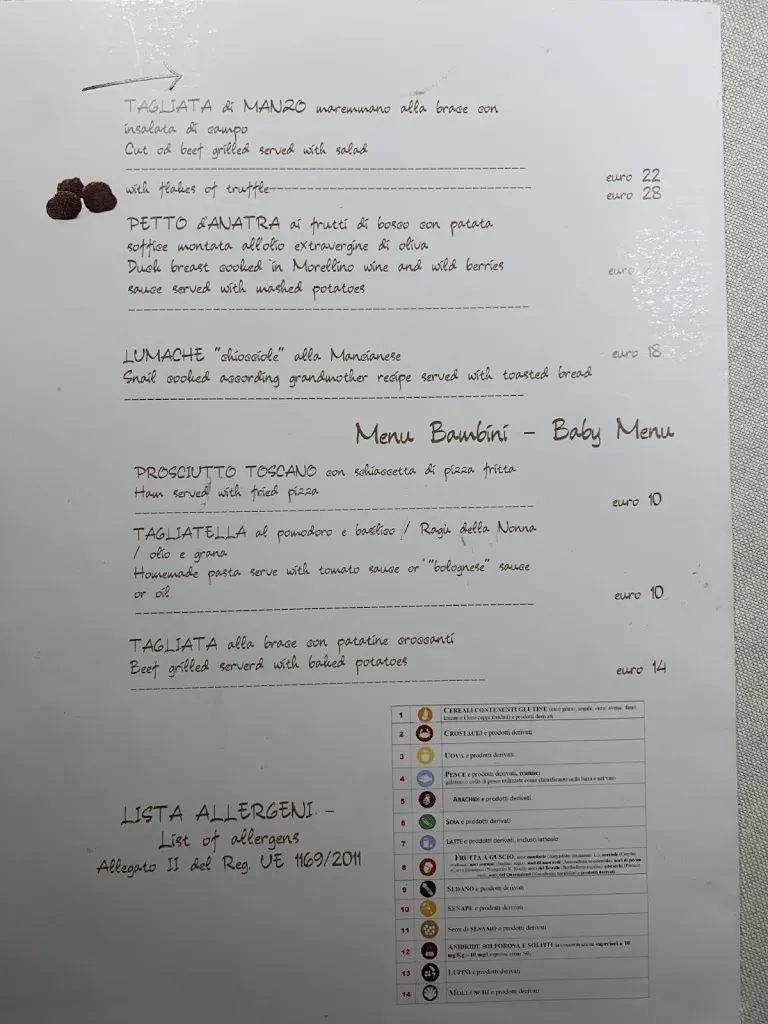 TAGLIATA di MANZO maremmano alla brace con
insalata di campo
Cut od beef grilled served with salad
euro 22
with flakes of truffle
euro 28
PETTO d'ANATRA ai frutti di bosco con patata
soffice montata all'olio extravergine di oliva
Duck breast cooked in Morellino wine and wild berries
euro
sauce served with mashed potatoes
LUMACHE "chiocciole" alla Mancianese
euro 18
Snail cooked according grandmother recipe served with toasted bread
Menu Bambini - Baby Menu
PROSCIUTTO TOSCANO con schiaccetta di pizza fritta
Ham served with fried pizza
euro 10
TAGLIATELLA al pomodoro e basilico / Ragù della Nonna
/ olio e grana
Homemade pasta serve with tomato sauce or "bolognese" sauce
or oil
euro 10
TAGLIATA alla brace con patatine croccanti
Beef grilled serverd with baked potatoes
euro 14
LISTA ALLERGENI -
List of allergens
Allegato II del Reg. UE 1169/2011
1 CEREALI CONTENENTI GLUTINE
e prodotti derivati
2 CROSTACEI e prodotti derivati
3 UOVA e prodotti derivati
4 PESCE e prodotti derivati, tranne:
5 ARACHIDI e prodotti derivati
6 SOIA e prodotti derivati
7 LATTE e prodotti derivati, incluso lattosio
8 FRUTTA A GUSCIO
e prodotti derivati
9 SEDANO e prodotti derivati
10 SENAPE e prodotti derivati
11 Semi di SESAMO e prodotti derivati
12 ANIDRIDE SOLFOROSA E SOLFITI in concentrazioni superiori a 10
mg/Kg o 10 mg/l
13 LUPINI e prodotti derivati
14 MOLLUSCHI e prodotti derivati